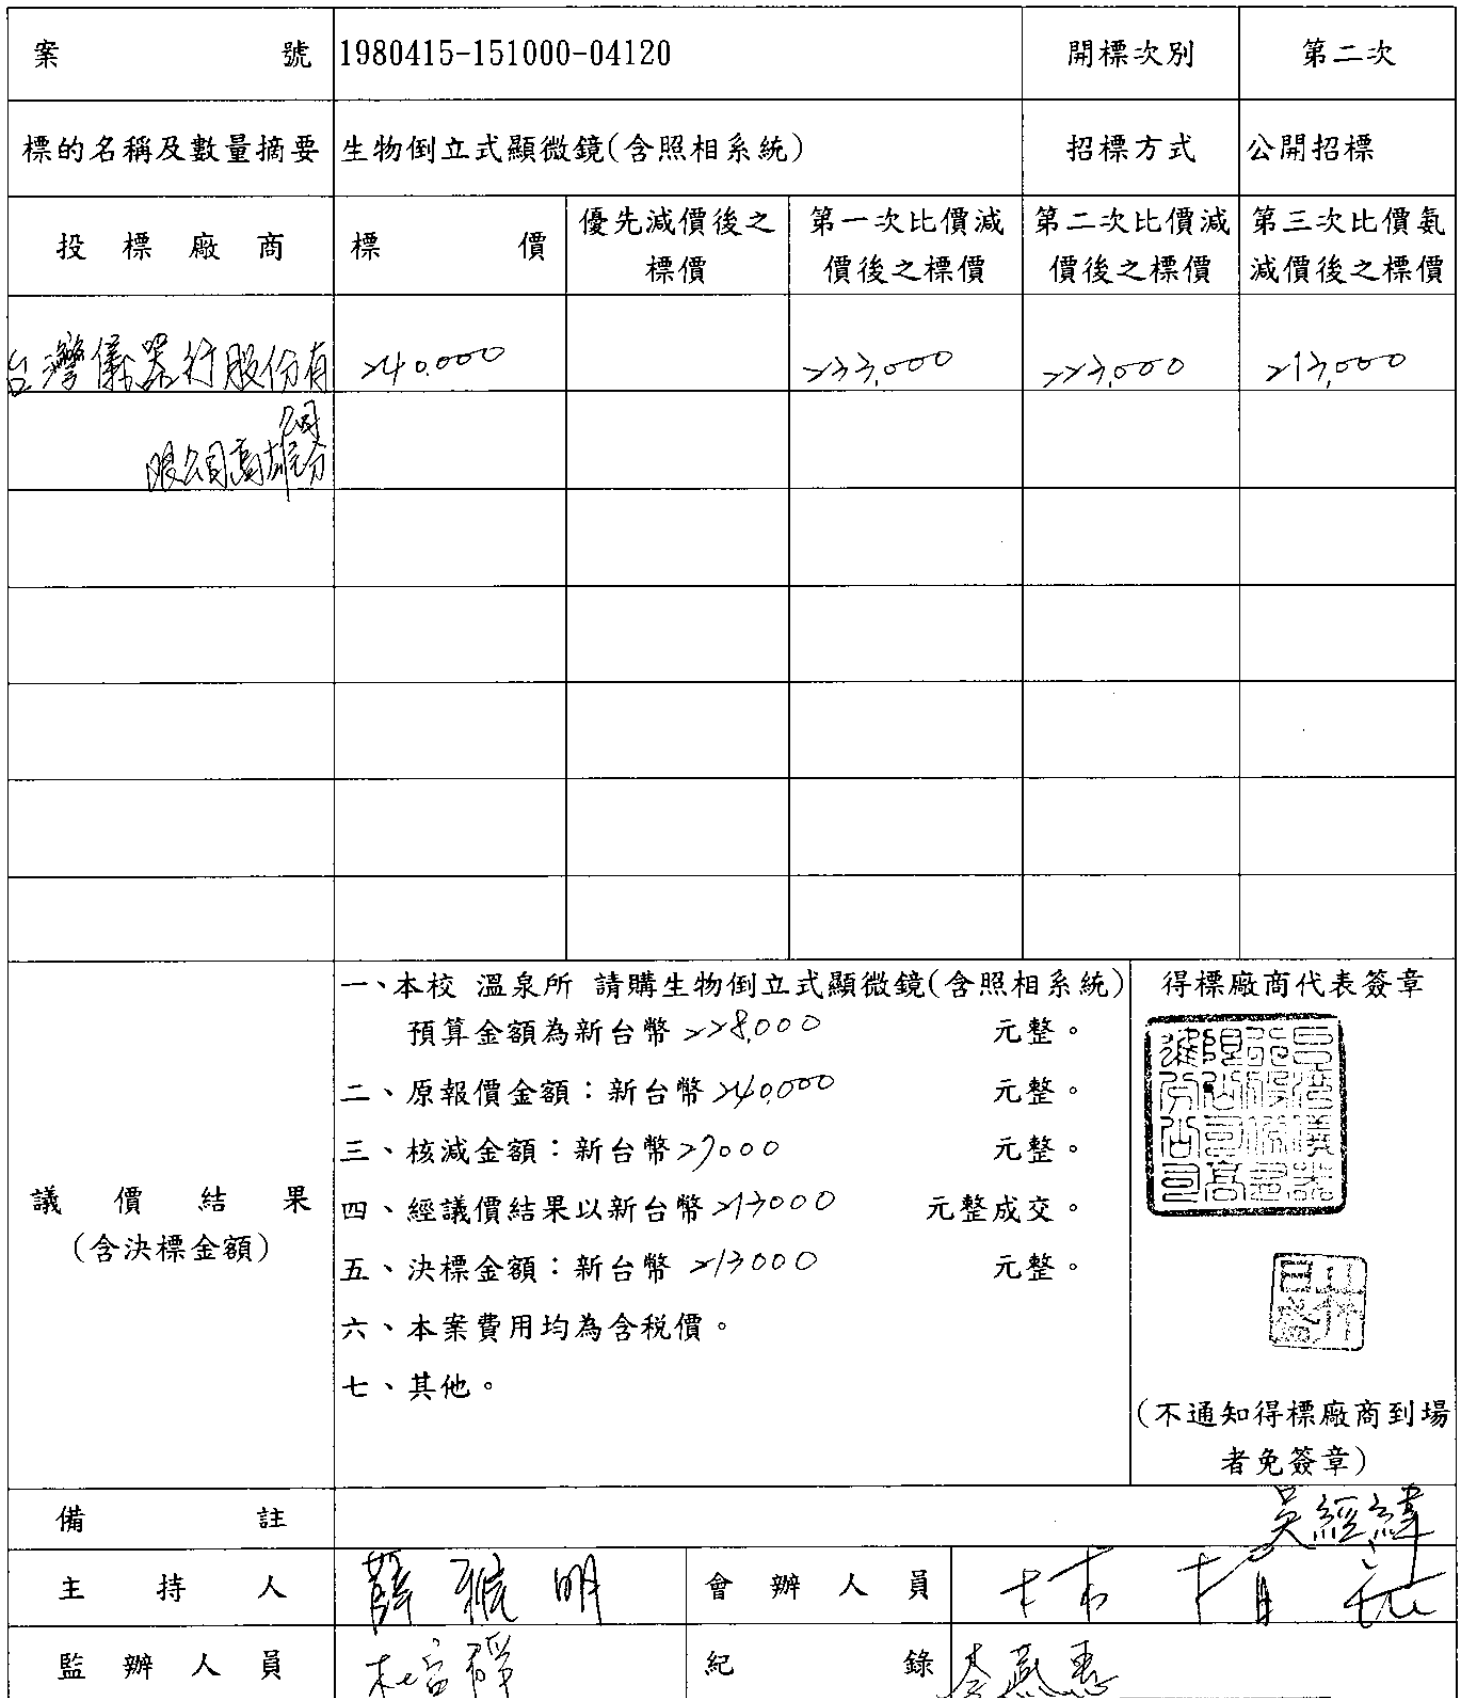 案 號 1980415-151000-04120 開標次別 第二次
標的名稱及數量摘要 生物倒立式顯微鏡(含照相系統) 招標方式 公開招標
投標廠商 標價 優先減價後之標價 第一次比價減價後之標價 第二次比價減價後之標價 第三次比價氨減價後之標價
台灣儀器行股份有 240,000 233,000 223,000 213,000
限公司高雄分公司
一、本校 溫泉所 請購生物倒立式顯微鏡(含照相系統)
預算金額為新台幣 228,000 元整。
二、原報價金額：新台幣 240,000 元整。
三、核減金額：新台幣 27000 元整。
四、經議價結果以新台幣 213000 元整成交。
五、決標金額：新台幣 213000 元整。
六、本案費用均為含稅價。
七、其他。
議價結果
(含決標金額)
得標廠商代表簽章
(不通知得標廠商到場
者免簽章)
備註 吳經緯
主持人 薛雅明 會辦人員
監辦人員 紀錄